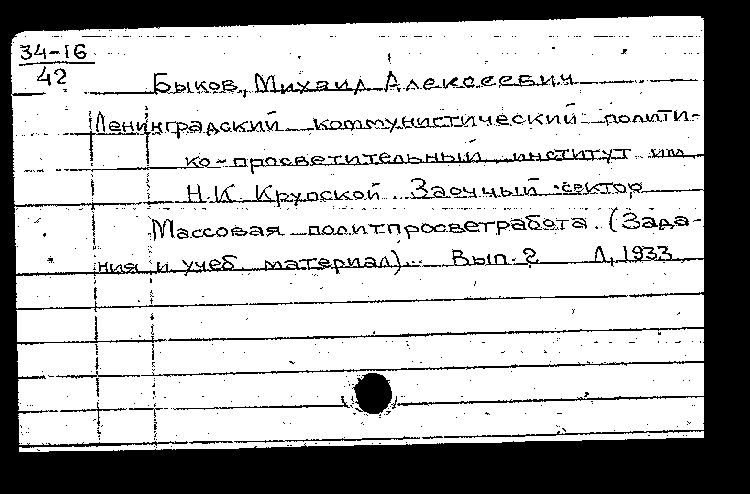 34-16
42
Быков, Михаил Алексеевич
Ленинградский коммунистический полити-
ко-просветительный институт им
Н.К Крупской. Заочный сектор
Массовая политпросветработа. (Зада-
ния и учеб. материал)... Вып. 2 Л, 1933